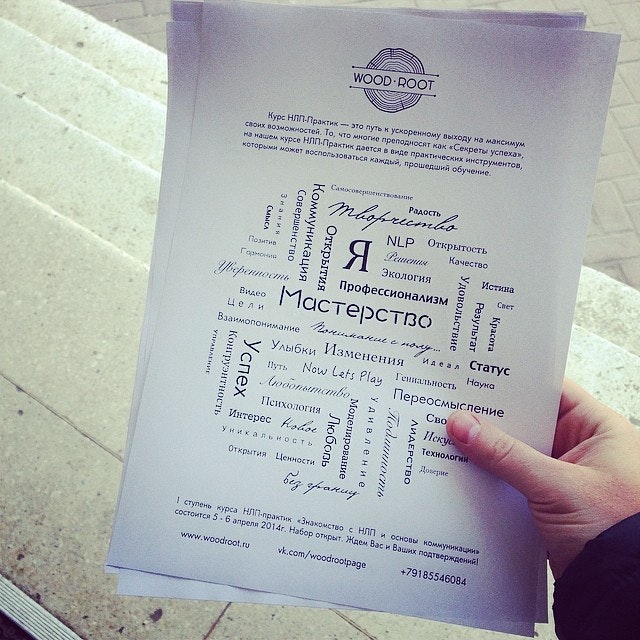 WOOD • ROOT
Курс НЛП-Практик — это путь к ускоренному выходу на максимум
своих возможностей. То, что многие преподносят как «Секреты успеха»,
на нашем курсе НЛП-Практик дается в виде практических инструментов,
которыми может воспользоваться каждый, прошедший обучение.
Самосовершенствование
Творчество
Радость
Знания
Смысл
Совершенство
Коммуникация
Открытия
Я
NLP
Открытость
Решения
Качество
Позитив
Гармония
Экология
Уверенность
Профессионализм
Удовольствие
Истина
Видео
Цели
Мастерство
Результат
Свет
Красота
Взаимопонимание
Понимание с полу...
Управление
Конгруэнтность
Успех
Улыбки
Изменения
Идеал
Статус
Путь
Now Lets Play
Гениальность
Наука
Любопытство
Переосмысление
Психология
Моделирование
Удивление
Подлинность
Лидерство
Сво
Интерес
Новое
Любовь
Искус
Уникальность
Технологии
Открытия
Ценности
Доверие
без границ
I ступень курса НЛП-практик «Знакомство с НЛП и основы коммуникации»
состоится 5 - 6 апреля 2014г. Набор открыт. Ждем Вас и Ваших подтверждений!
www.woodroot.ru
vk.com/woodrootpage
+79185546084